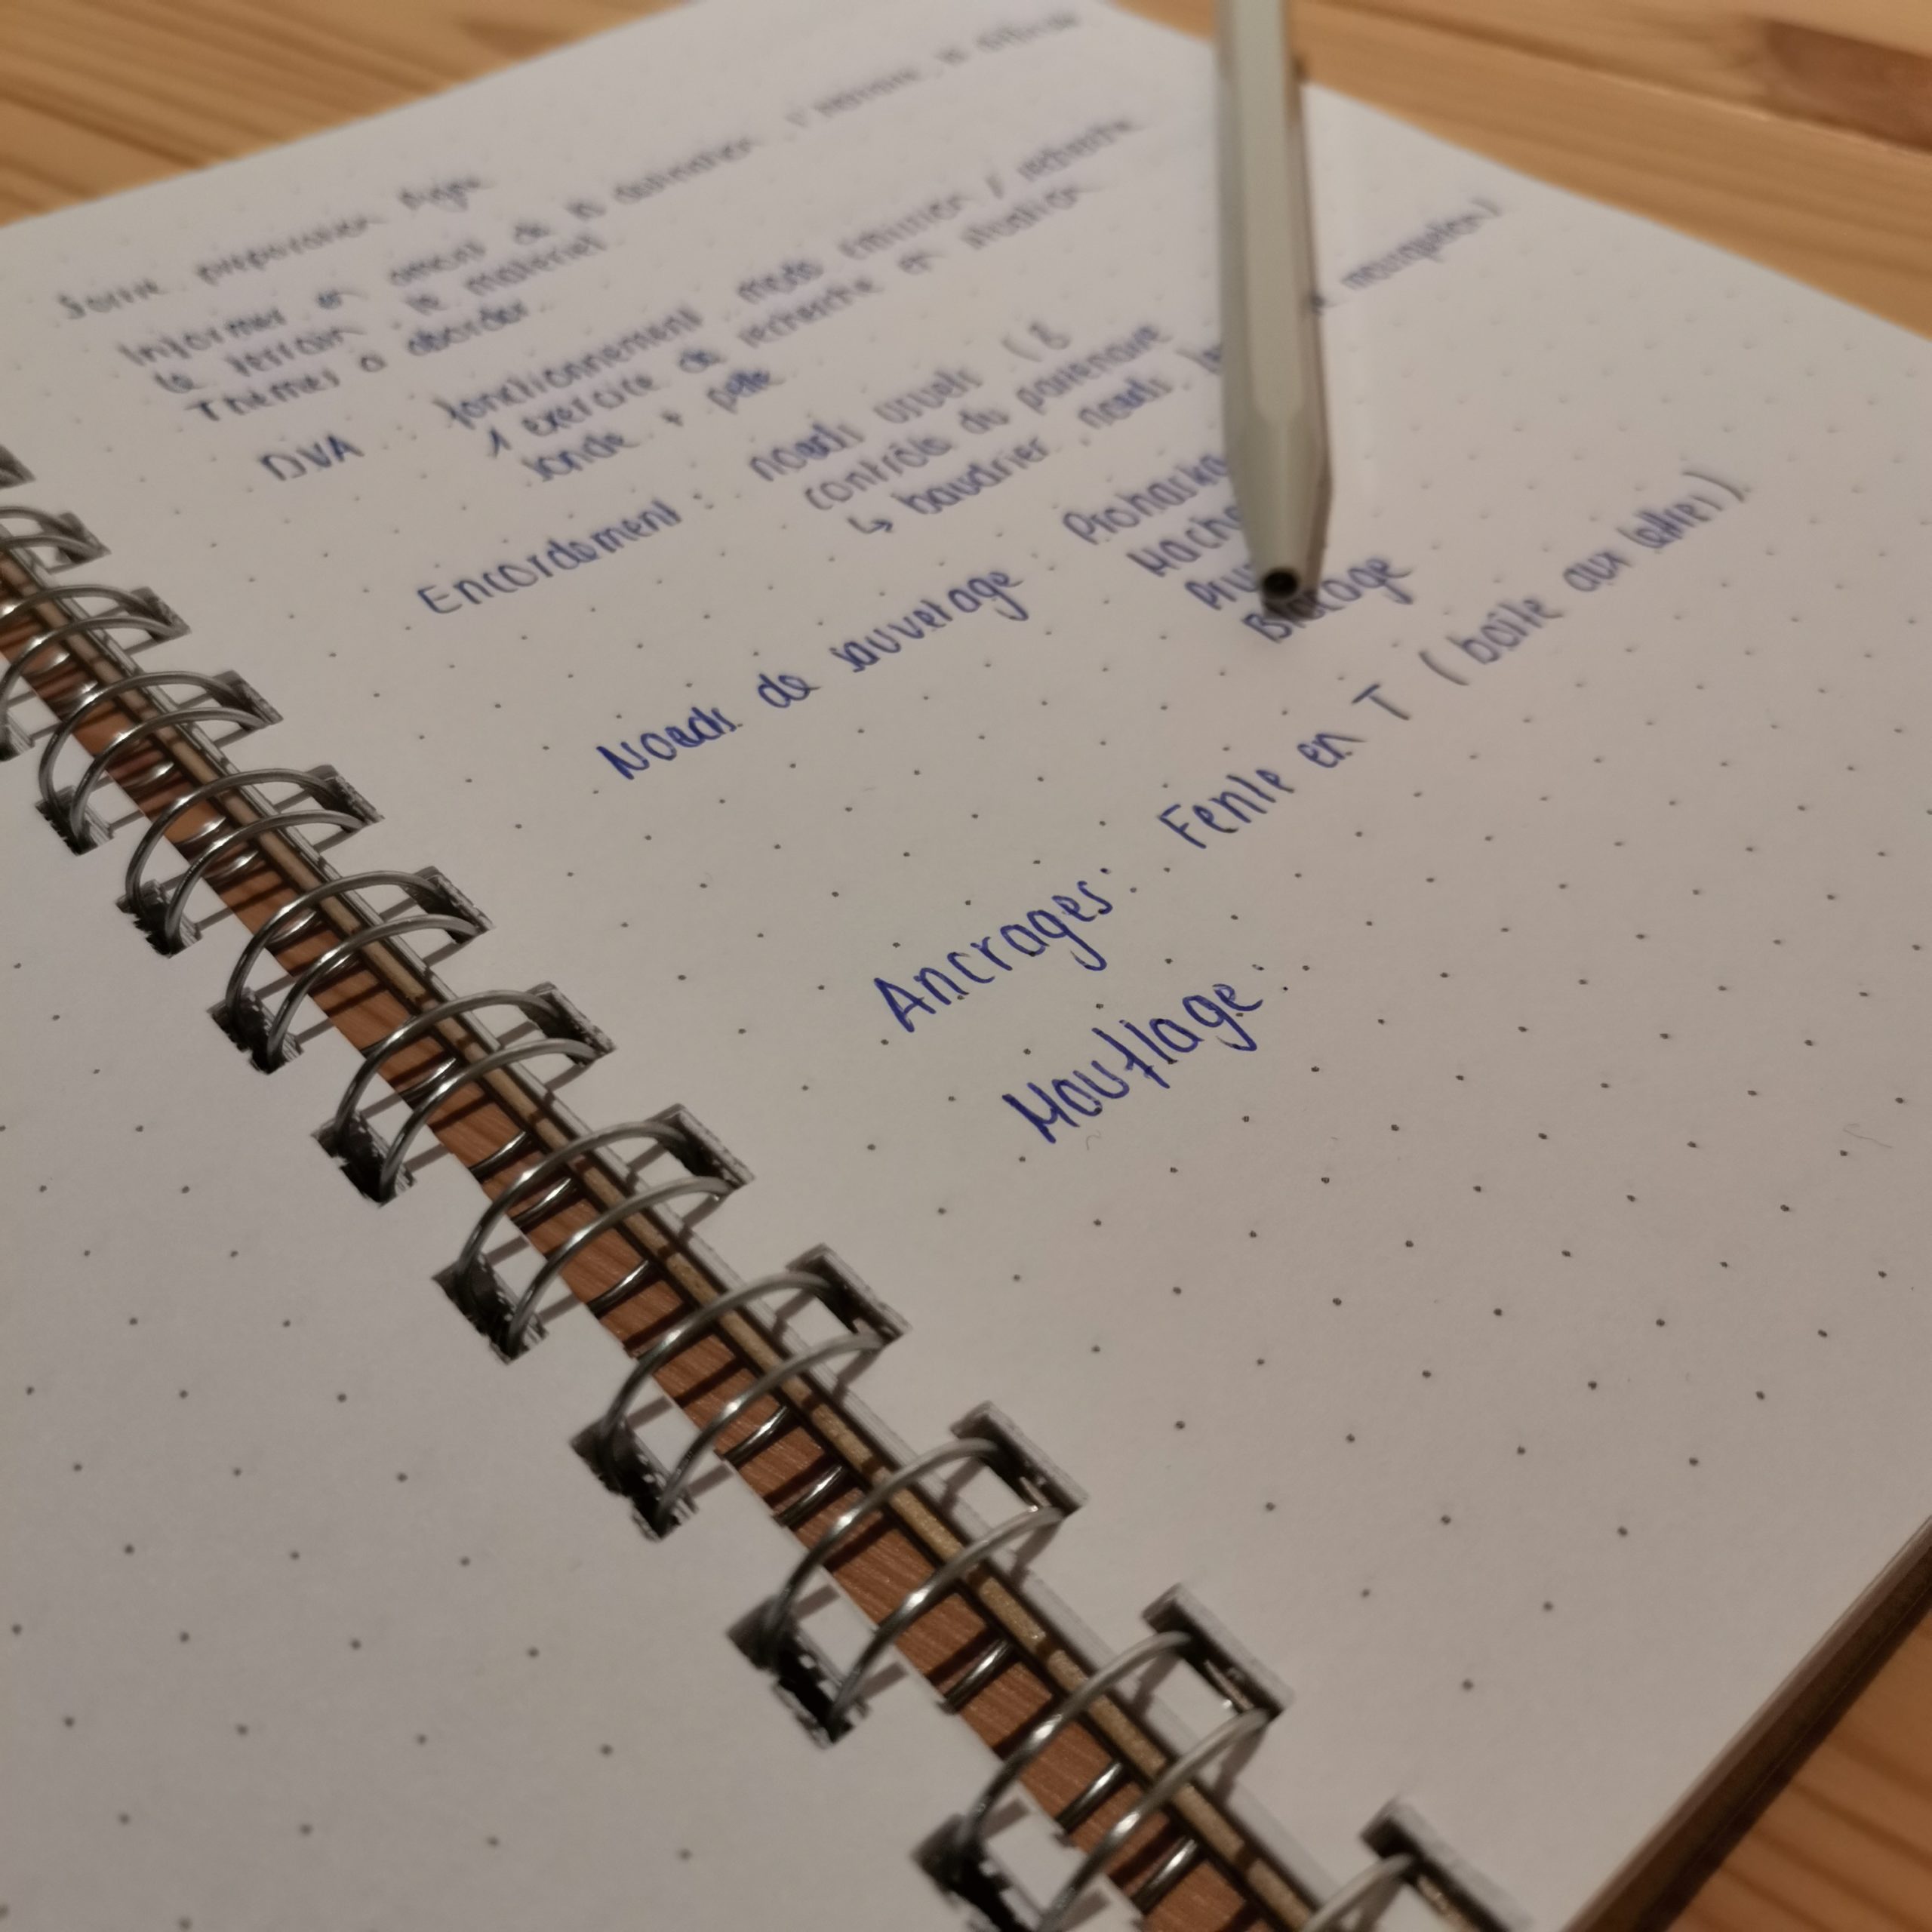 Sortie préparation
Informer en amont de la destination, l'horaire, la difficulté
le terrain, le matériel
Thèmes à aborder
DVA : fonctionnement, mode émission / recherche
1 exercice de recherche en situation
sonde + pelle
Encordement : nœuds usuels (8
contrôle du partenaire
↳ baudrier, nœuds, mousqueton)
Nœuds de sauvetage :
Blocage
Ancrages : Fente en T (boîte aux lettres)
Mouflage :